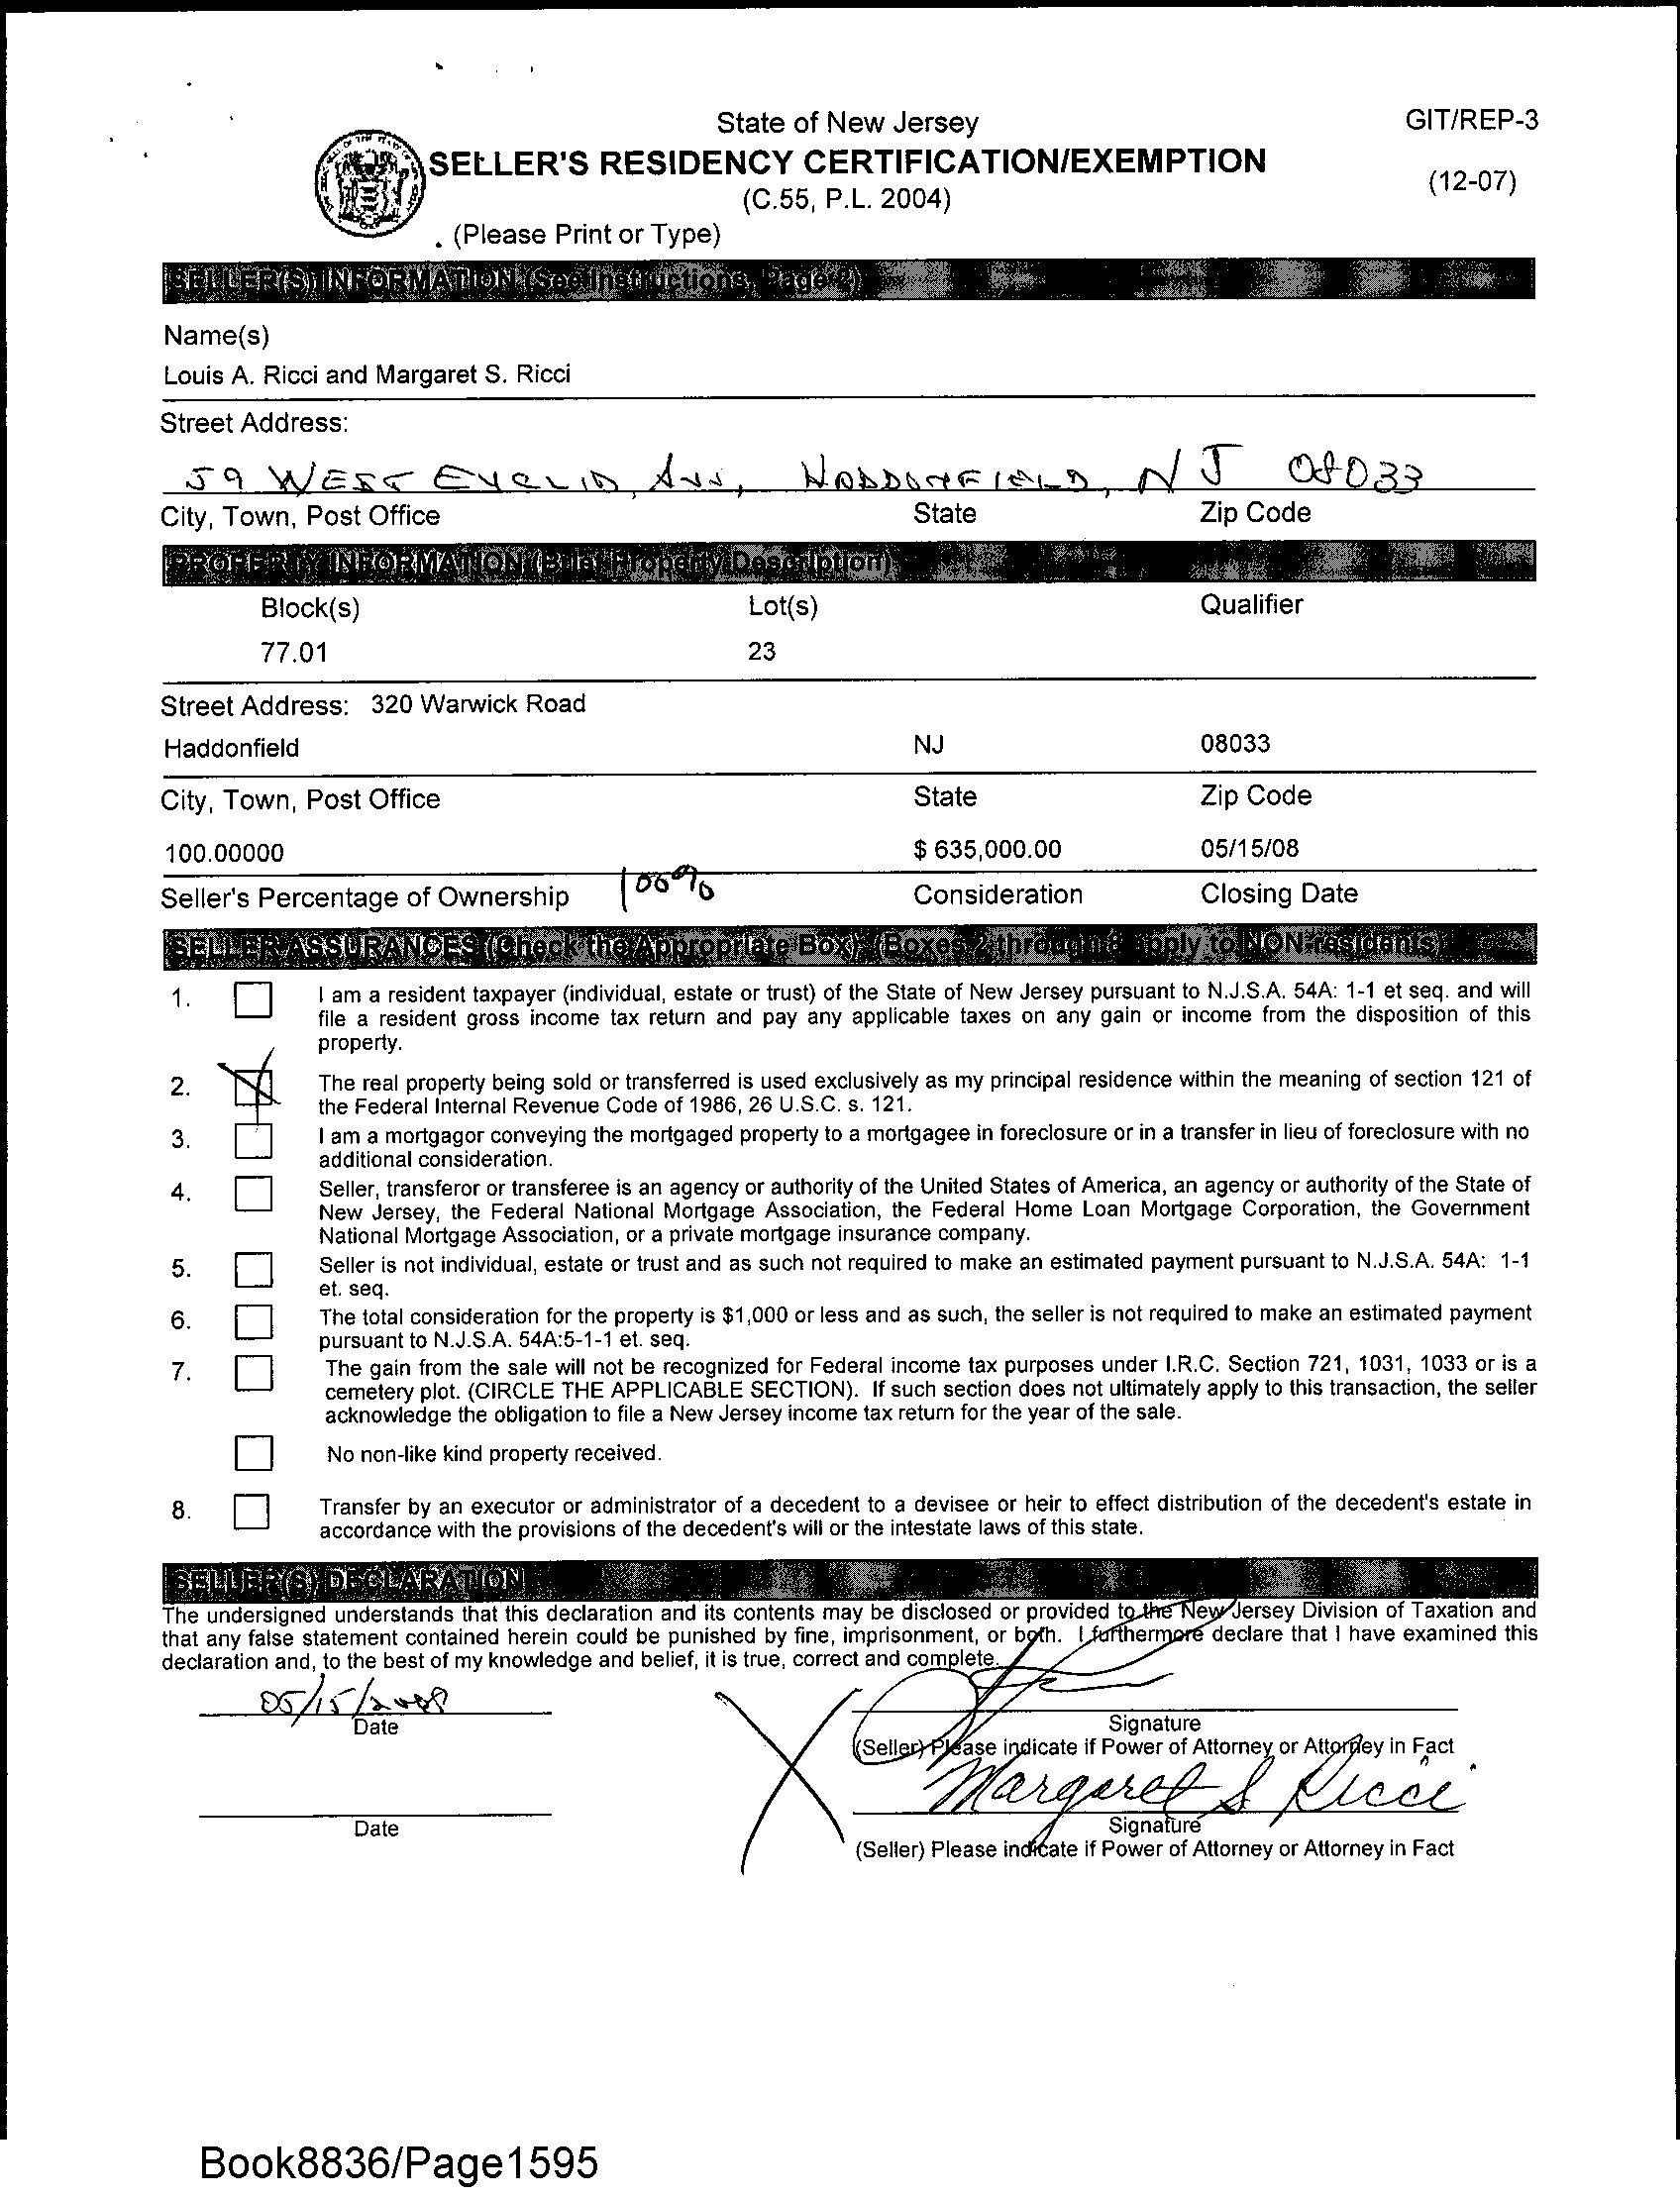 State of New Jersey
GIT/REP-3
SELLER'S RESIDENCY CERTIFICATION/EXEMPTION
(12-07)
(C.55, P.L. 2004)
(Please Print or Type)
SELLER(S) INFORMATION (See Instructions, Page 2)
Name(s)
Louis A. Ricci and Margaret S. Ricci
Street Address:
59 WEST EUCLID AVE, HADDONFIELD, NJ 08033
City, Town, Post Office State Zip Code
PROPERTY INFORMATION (Brief Property Description)
Block(s) Lot(s) Qualifier
77.01 23
Street Address: 320 Warwick Road
Haddonfield NJ 08033
City, Town, Post Office State Zip Code
100.00000 $ 635,000.00 05/15/08
Seller's Percentage of Ownership 100% Consideration Closing Date
SELLER ASSURANCES (Check the Appropriate Box) (Boxes 2 through 8 apply to NON-residents)
1. I am a resident taxpayer (individual, estate or trust) of the State of New Jersey pursuant to N.J.S.A. 54A: 1-1 et seq. and will
file a resident gross income tax return and pay any applicable taxes on any gain or income from the disposition of this
property.
2. The real property being sold or transferred is used exclusively as my principal residence within the meaning of section 121 of
the Federal Internal Revenue Code of 1986, 26 U.S.C. s. 121.
3. I am a mortgagor conveying the mortgaged property to a mortgagee in foreclosure or in a transfer in lieu of foreclosure with no
additional consideration.
4. Seller, transferor or transferee is an agency or authority of the United States of America, an agency or authority of the State of
New Jersey, the Federal National Mortgage Association, the Federal Home Loan Mortgage Corporation, the Government
National Mortgage Association, or a private mortgage insurance company.
5. Seller is not individual, estate or trust and as such not required to make an estimated payment pursuant to N.J.S.A. 54A: 1-1
et. seq.
6. The total consideration for the property is $1,000 or less and as such, the seller is not required to make an estimated payment
pursuant to N.J.S.A. 54A:5-1-1 et. seq.
7. The gain from the sale will not be recognized for Federal income tax purposes under I.R.C. Section 721, 1031, 1033 or is a
cemetery plot. (CIRCLE THE APPLICABLE SECTION). If such section does not ultimately apply to this transaction, the seller
acknowledge the obligation to file a New Jersey income tax return for the year of the sale.
No non-like kind property received.
8. Transfer by an executor or administrator of a decedent to a devisee or heir to effect distribution of the decedent's estate in
accordance with the provisions of the decedent's will or the intestate laws of this state.
SELLER(S) DECLARATION
The undersigned understands that this declaration and its contents may be disclosed or provided to the New Jersey Division of Taxation and
that any false statement contained herein could be punished by fine, imprisonment, or both. I furthermore declare that I have examined this
declaration and, to the best of my knowledge and belief, it is true, correct and complete.
05/15/2008
Date Signature
(Seller) Please indicate if Power of Attorney or Attorney in Fact
Margaret S Ricci
Date Signature
(Seller) Please indicate if Power of Attorney or Attorney in Fact
Book8836/Page1595